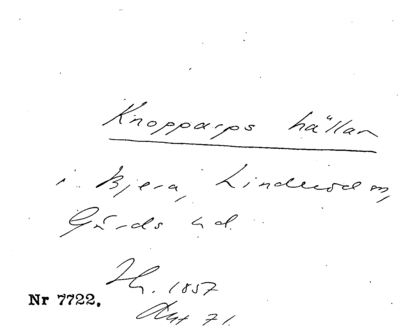 Knopparps hällar
i Bjera, Linderöd sn,
Gärds hd.
1857
Nr 7722.
71.